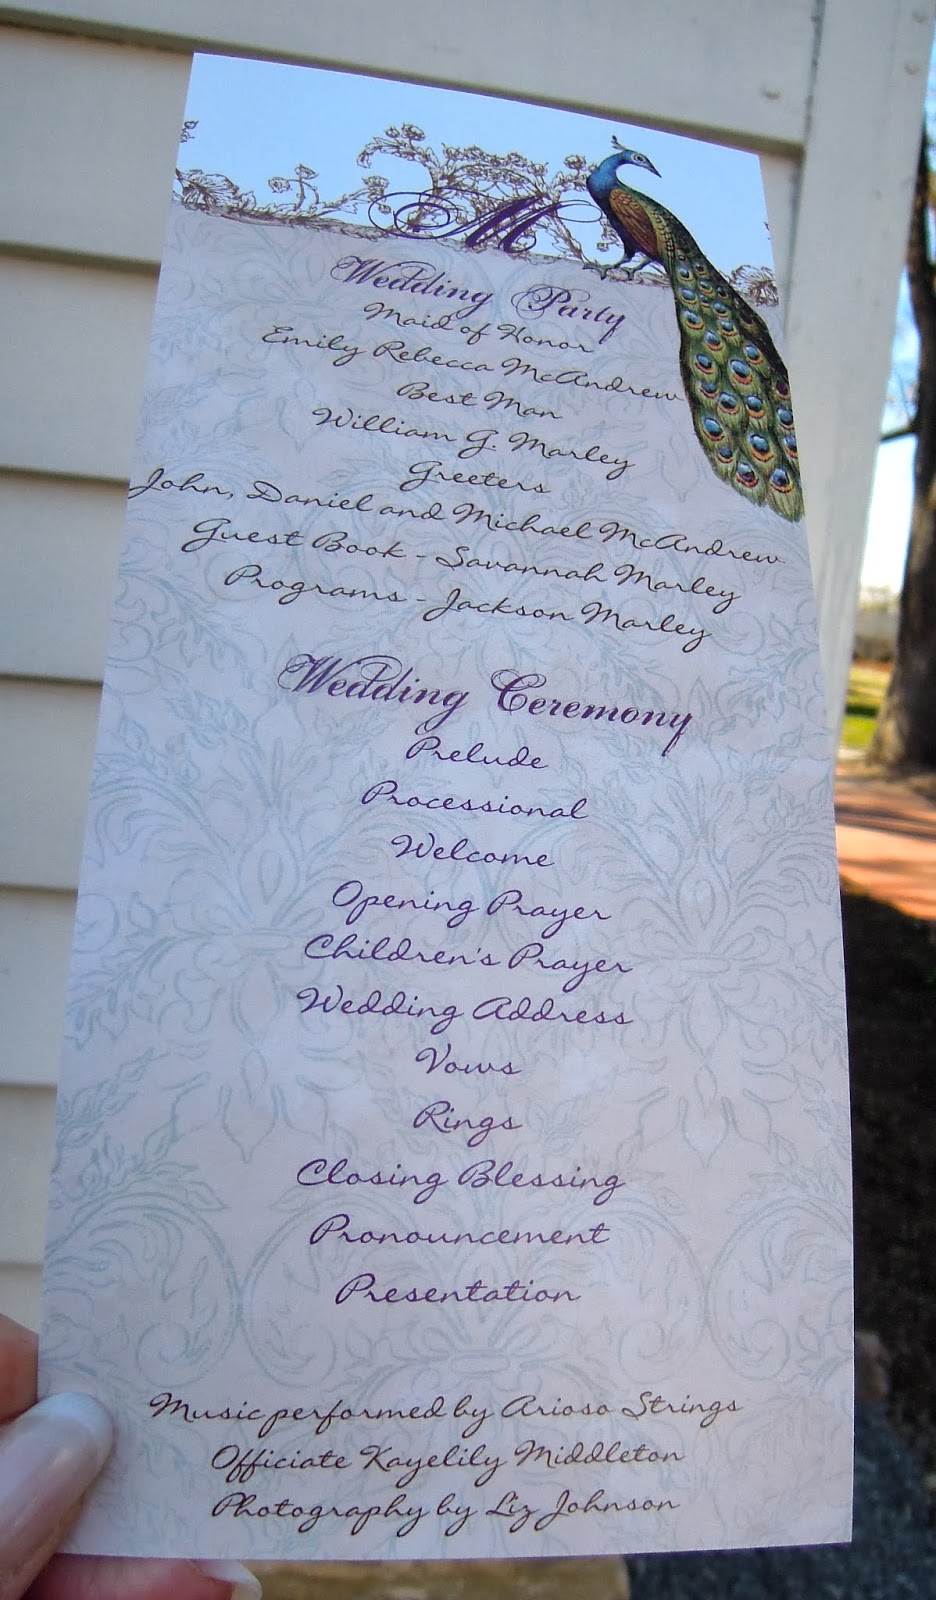 M
Wedding Party
Maid of Honor
Emily Rebecca McAndrew
Best Man
William G. Marley
Greeters
John, Daniel and Michael McAndrew
Guest Book - Savannah Marley
Programs - Jackson Marley
Wedding Ceremony
Prelude
Processional
Welcome
Opening Prayer
Children's Prayer
Wedding Address
Vows
Rings
Closing Blessing
Pronouncement
Presentation
Music performed by Arioso Strings
Officiate Kayelily Middleton
Photography by Liz Johnson